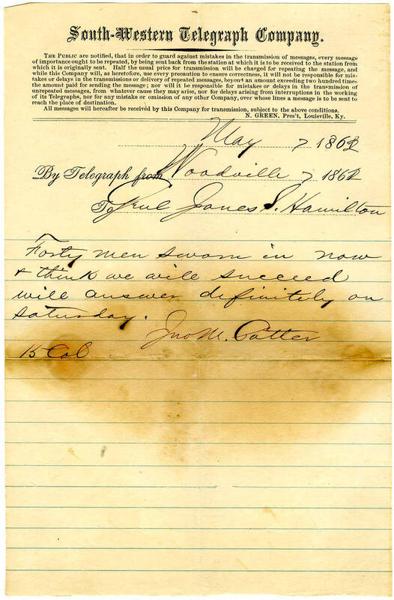 South-Western Telegraph Company.
THE PUBLIC are notified, that in order to guard against mistakes in the transmission of messages, every message
of importance ought to be repeated, by being sent back from the station at which it is to be received to the station from
which it is originally sent. Half the usual price for transmission will be charged for repeating the message, and
while this Company will, as heretofore, use every precaution to ensure correctness, it will not be responsible for mis-
takes or delays in the transmission or delivery of repeated messages, beyont an amount exceeding two hundred time-
the amount paid for sending the message; nor will it be responsible for mistakes or delays in the transmission of
unrepeated messages, from whatever cause they may arise, nor for delays arising from interruptions in the working
of its Telegraphs, nor for any mistake or omission of any other Company, over whose lines a message is to be sent to
reach the place of destination.
All messages will hereafter be received by this Company for transmission, subject to the above conditions.
N. GREEN, Pres't, Louisville, Ky.
May 7 1862
By Telegraph from Woodville 7 1862
To Genl Jones S. Hamilton
Forty men sworn in now
& think we will succeed
will answer definitely on
Saturday.
Jno M. Potter
15 Col